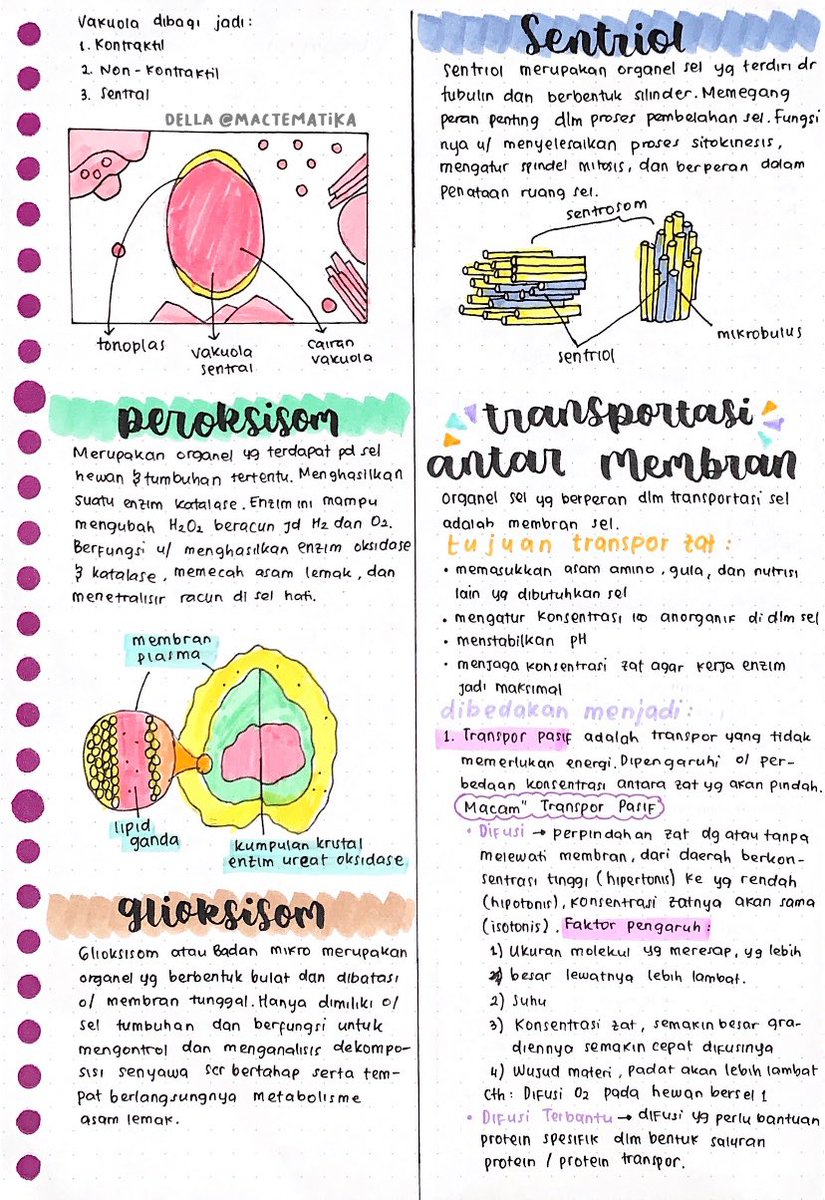 Vakuola dibagi jadi:
1. Kontraktil
2. Non-kontraktil
3. Sentral
DELLA @MACTEMATIKA
tonoplas
vakuola
sentral
cairan
vakuola
peroksisom
Merupakan organel yg terdapat pd sel
hewan & tumbuhan tertentu. Menghasilkan
suatu enzim katalase. Enzim ini mampu
mengubah H2O2 beracun jd H2 dan O2.
Berfungsi u/ menghasilkan enzim oksidase
& katalase, memecah asam lemak, dan
menetralisir racun di sel hati.
membran
plasma
lipid
ganda
kumpulan kristal
enzim ureat oksidase
glioksisom
Glioksisom atau Badan mikro merupakan
organel yg berbentuk bulat dan dibatasi
o/ membran tunggal. Hanya dimiliki o/
sel tumbuhan dan berfungsi untuk
mengontrol dan menganalisis dekompo-
sisi senyawa scr bertahap serta tem-
pat berlangsungnya metabolisme
asam lemak.
Sentriol
Sentriol merupakan organel sel yg terdiri dr
tubulin dan berbentuk silinder. Memegang
peran penting dlm proses pembelahan sel. Fungsi
nya u/ menyelesaikan proses sitokinesis,
mengatur spindel mitosis, dan berperan dalam
penataan ruang sel.
sentrosom
sentriol
mikrobulus
transportasi
antar membran
organel sel yg berperan dlm transportasi sel
adalah membran sel.
tujuan transpor zat:
• memasukkan asam amino, gula, dan nutrisi
lain yg dibutuhkan sel
• mengatur konsentrasi ion anorganik di dlm sel
• menstabilkan pH
• menjaga konsentrasi zat agar kerja enzim
jadi maksimal
dibedakan menjadi:
1. Transpor pasif adalah transpor yang tidak
memerlukan energi. Dipengaruhi o/ per-
bedaan konsentrasi antara zat yg akan pindah.
Macam" Transpor Pasif
• Difusi → perpindahan zat dg atau tanpa
melewati membran, dari daerah berkon-
sentrasi tinggi (hipertonis) ke yg rendah
(hipotonis), konsentrasi zatnya akan sama
(isotonis). Faktor pengaruh:
1) Ukuran molekul yg meresap, yg lebih
besar lewatnya lebih lambat.
2) Suhu
3) Konsentrasi zat, semakin besar gra-
diennya semakin cepat difusinya
4) Wujud materi, padat akan lebih lambat
Cth: Difusi O2 pada hewan bersel 1
• Difusi Terbantu → difusi yg perlu bantuan
protein spesifik dlm bentuk saluran
protein / protein transpor.